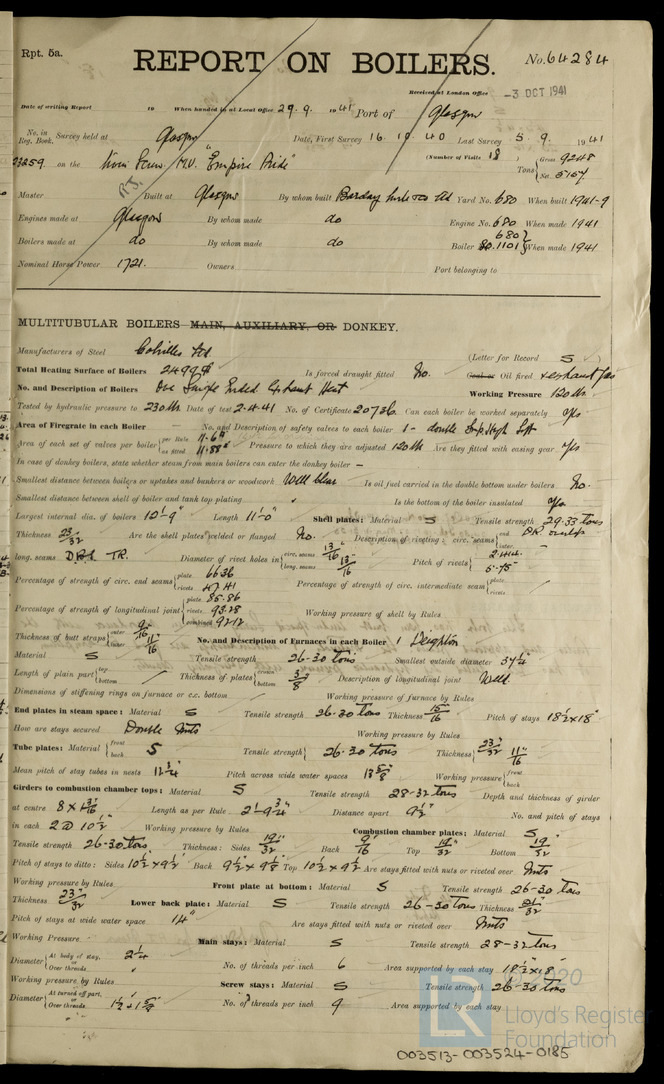 Rpt. 5a.
REPORT ON BOILERS.
No. 64284
Received at London Office
-3 OCT 1941
Date of writing Report 19 When handed in at Local Office 29.9.1941 Port of Glasgow
No. in Reg. Book. Survey held at Glasgow Date, First Survey 16.10.40 Last Survey 5.9.1941
23259 on the M.V. "Empire Pride" (Number of Visits 18) Tons Gross 9248
Net
Master Built at Glasgow By whom built Barclay Curle & Co Ltd Yard No. 680 When built 1941-9
Engines made at Glasgow By whom made do Engine No. 680 When made 1941
Boilers made at do By whom made do Boiler No. 680 1101 When made 1941
Nominal Horse Power 1721. Owners Port belonging to
MULTITUBULAR BOILERS MAIN, AUXILIARY, OR DONKEY.
Manufacturers of Steel Colvilles Ltd (Letter for Record S)
Total Heating Surface of Boilers Is forced draught fitted No. Coal or Oil fired & exhaust gas
No. and Description of Boilers One Single Ended Exhaust Heat Working Pressure 120 lb
Tested by hydraulic pressure to 230 lb Date of test 2.4.41 No. of Certificate 20736. Can each boiler be worked separately Yes
Area of Firegrate in each Boiler No. and Description of safety valves to each boiler 1- double
Area of each set of valves per boiler per Rule 11.6 as fitted 11.88 Pressure to which they are adjusted 120 lb Are they fitted with easing gear Yes
In case of donkey boilers, state whether steam from main boilers can enter the donkey boiler -
Smallest distance between boilers or uptakes and bunkers or woodwork Well clear Is oil fuel carried in the double bottom under boilers No.
Smallest distance between shell of boiler and tank top plating " Is the bottom of the boiler insulated Yes
Largest internal dia. of boilers 12'-9" Length 11'-0" Shell plates: Material S Tensile strength 29-33 tons
Thickness 23/32 Are the shell plates welded or flanged No. Description of riveting: circ. seams end DR
inter.
long. seams TR. Diameter of rivet holes in circ. seams 13/16 long. seams 13/16 Pitch of rivets 5.75
Percentage of strength of circ. end seams plate 66.36 rivets 47.41 Percentage of strength of circ. intermediate seam plate rivets
Percentage of strength of longitudinal joint plate 85.86 rivets 93.28 combined 92.12 Working pressure of shell by Rules
Thickness of butt straps outer 9/16 inner 11/16 No. and Description of Furnaces in each Boiler 1 Deighton
Material S Tensile strength 26-30 tons Smallest outside diameter 37 1/2
Length of plain part top bottom Thickness of plates crown bottom 3/8 Description of longitudinal joint Weld
Dimensions of stiffening rings on furnace or c.c. bottom Working pressure of furnace by Rules
End plates in steam space: Material S Tensile strength 26-30 tons Thickness 15/16 Pitch of stays 18 1/2 x 18"
How are stays secured Double Nuts Working pressure by Rules
Tube plates: Material front back S Tensile strength 26-30 tons Thickness 23/32 11/16
Mean pitch of stay tubes in nests 12 3/4 Pitch across wide water spaces 13 5/8 Working pressure front back
Girders to combustion chamber tops: Material S Tensile strength 28-32 tons Depth and thickness of girder
at centre Length as per Rule 2'-9 3/4" Distance apart 9 1/2" No. and pitch of stays
in each 2 @ 10 1/2 Working pressure by Rules Combustion chamber plates: Material S
Tensile strength 26-30 tons Thickness: Sides 19/32 Back 9/16 Top 19/32 Bottom 19/32
Pitch of stays to ditto: Sides 10 1/2 x 9 1/2 Back 9 1/2 x 9 1/8 Top 10 1/2 x 9 1/2 Are stays fitted with nuts or riveted over Nuts
Working pressure by Rules Front plate at bottom: Material S Tensile strength 26-30 tons
Thickness 23/32 Lower back plate: Material S Tensile strength 26-30 tons Thickness 21/32
Pitch of stays at wide water space 14" Are stays fitted with nuts or riveted over Nuts
Working Pressure Main stays: Material S Tensile strength 28-32 tons
Diameter At body of stay, or Over threads 2 1/4 No. of threads per inch 6 Area supported by each stay 18 1/2 x 18"
Working pressure by Rules Screw stays: Material S Tensile strength 26-30 tons
Diameter At turned off part, or Over threads No. of threads per inch 9 Area supported by each stay
© 2020
LR Lloyd's Register Foundation
003513-003524-0185